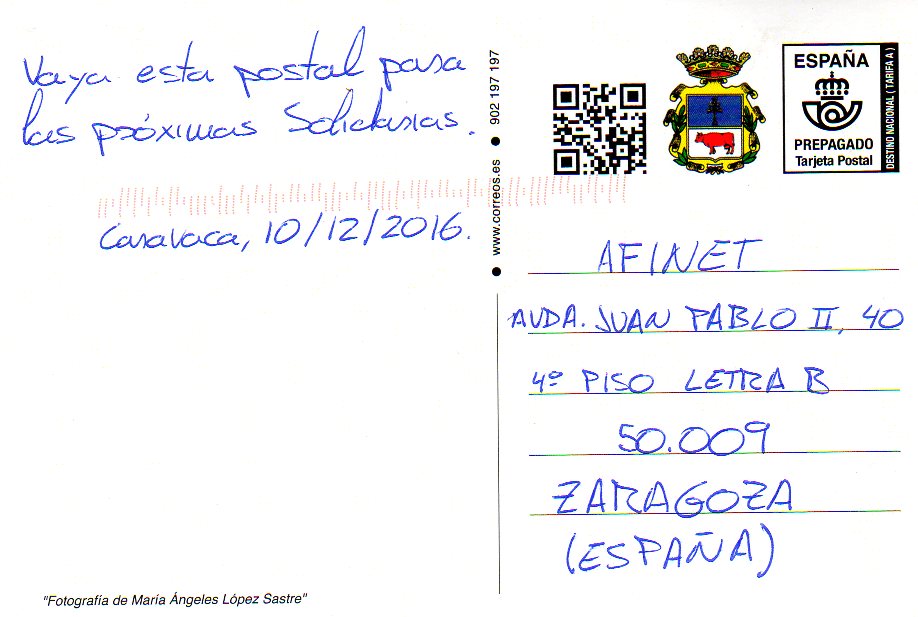 Vaya esta postal para
las próximas Solidarias.
Caravaca, 10/12/2016.
"Fotografía de María Ángeles López Sastre"
www.correos.es ● 902 197 197
ESPAÑA
PREPAGADO
Tarjeta Postal
DESTINO NACIONAL ( TARIFA A )
AFINET
AVDA. JUAN PABLO II, 40
4º PISO LETRA B
50.009
ZARAGOZA
(ESPAÑA)